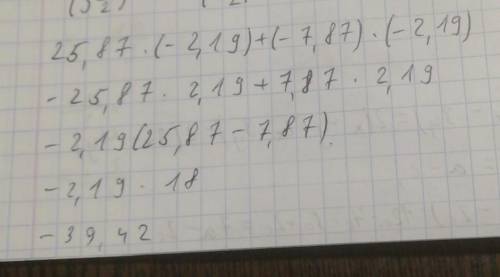 25,87 · (-2,19) + (-7,87) · (-2,19)
-25,87 · 2,19 + 7,87 · 2,19
-2,19(25,87 - 7,87)
-2,19 · 18
-39,42